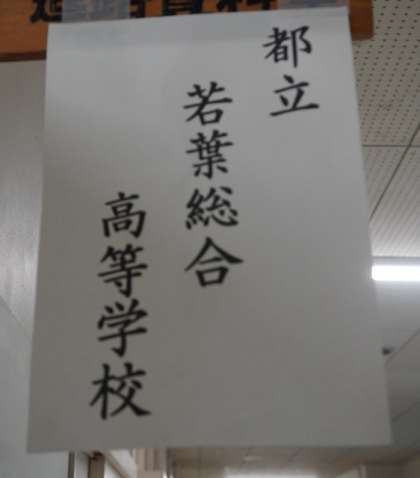 都立
若葉総合
高等学校